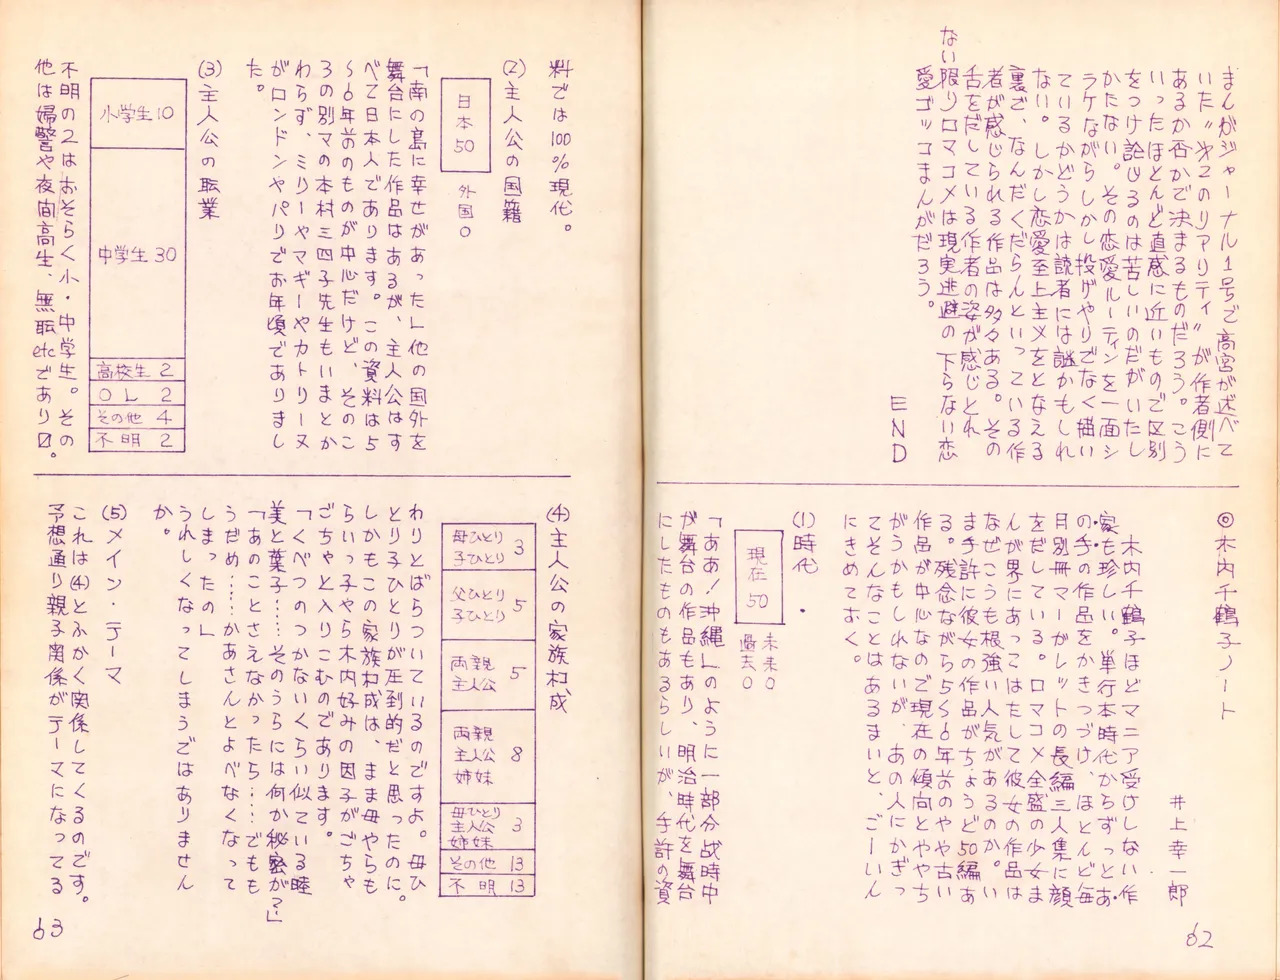 まんがジャーナル1号で高宮が述べて
いた〝第2のリアリティ〟が作者側に
あるか否かで決まるものだろう。こう
いったほとんど直感に近いもので区別
をつけ論じるのは苦しいのだがいたし
かたない。その恋愛ルーティンを一面シ
ラケながらしかし投げやりでなく描い
ているかどうかは読者には謎かもしれ
ない。しかし恋愛至上主メをとなえる
裏で、なんだくだらんといっている作
者が感じられる作品は多々ある。その
舌をだしている作者の姿が感じとれ
ない限りロマコメは現実逃避の下らない恋
愛ゴッコまんがだろう。
END
◎木内千鶴子ノート
井上幸一郎
木内千鶴子ほどマニア受けしない作
家も珍しい。単行本時代からずっとあ
の手の作品をかきつづけ、ほとんど毎
月別冊マーガレットの長編三人集に顔
をだしている。ロマコメ全盛の少女ま
んが界にあってはたして彼女の作品は
なぜこうも根強い人気があるのか。い
ま手許に彼女の作品がちょうど50編あ
る。残念ながら5〜6年前のやや古い
作品が中心なので現在の傾向とややち
がうかもしれないが、あの人にかぎっ
てそんなことはあるまいと、ごーいん
にきめておく。
(1)時代
現在50
未来0
過去0
「ああ!沖縄」のように一部分戦時中
が舞台の作品もあり、明治時代を舞台
にしたものもあるらしいが、手許の資
62
料では100%現代。
(2)主人公の国籍
日本50
外国0
「南の島に幸せがあった」他の国外を
舞台にした作品はあるが、主人公はす
べて日本人であります。この資料は5
〜6年前のものが中心だけど、そのこ
ろの別マの本村三四子先生もいまとか
わらず、ミリーやマギーやカトリーヌ
がロンドンやパリでお年頃でありまし
た。
(3)主人公の職業
小学生10
中学生30
高校生2
OL 2
その他4
不明2
不明の2はおそらく小・中学生。その
他は婦警や夜間高生、無職etcであり〼。
(4)主人公の家族構成
母ひとり
子ひとり 3
父ひとり
子ひとり 5
両親
主人公 5
両親
主人公
姉妹 8
母ひとり
主人公
姉妹 3
その他13
不明13
わりとばらついているのですよ。母ひ
とり子ひとりが圧到的だと思ったのに。
しかもこの家族構成は、まま母やらも
らいっ子やら木内好みの因子がごちゃ
ごちゃと入りこむのであります。
「くべつのつかないくらい似ている睦
美と葉子……そのうらには何か秘密が?」
「あのことさえなかったら……でもも
うだめ……かあさんとよべなくなって
しまったの」
うれしくなってしまうではありません
か。
(5)メイン・テーマ
これは(4)とふかく関係してくるのです。
予想通り親子関係がテーマになってる
63